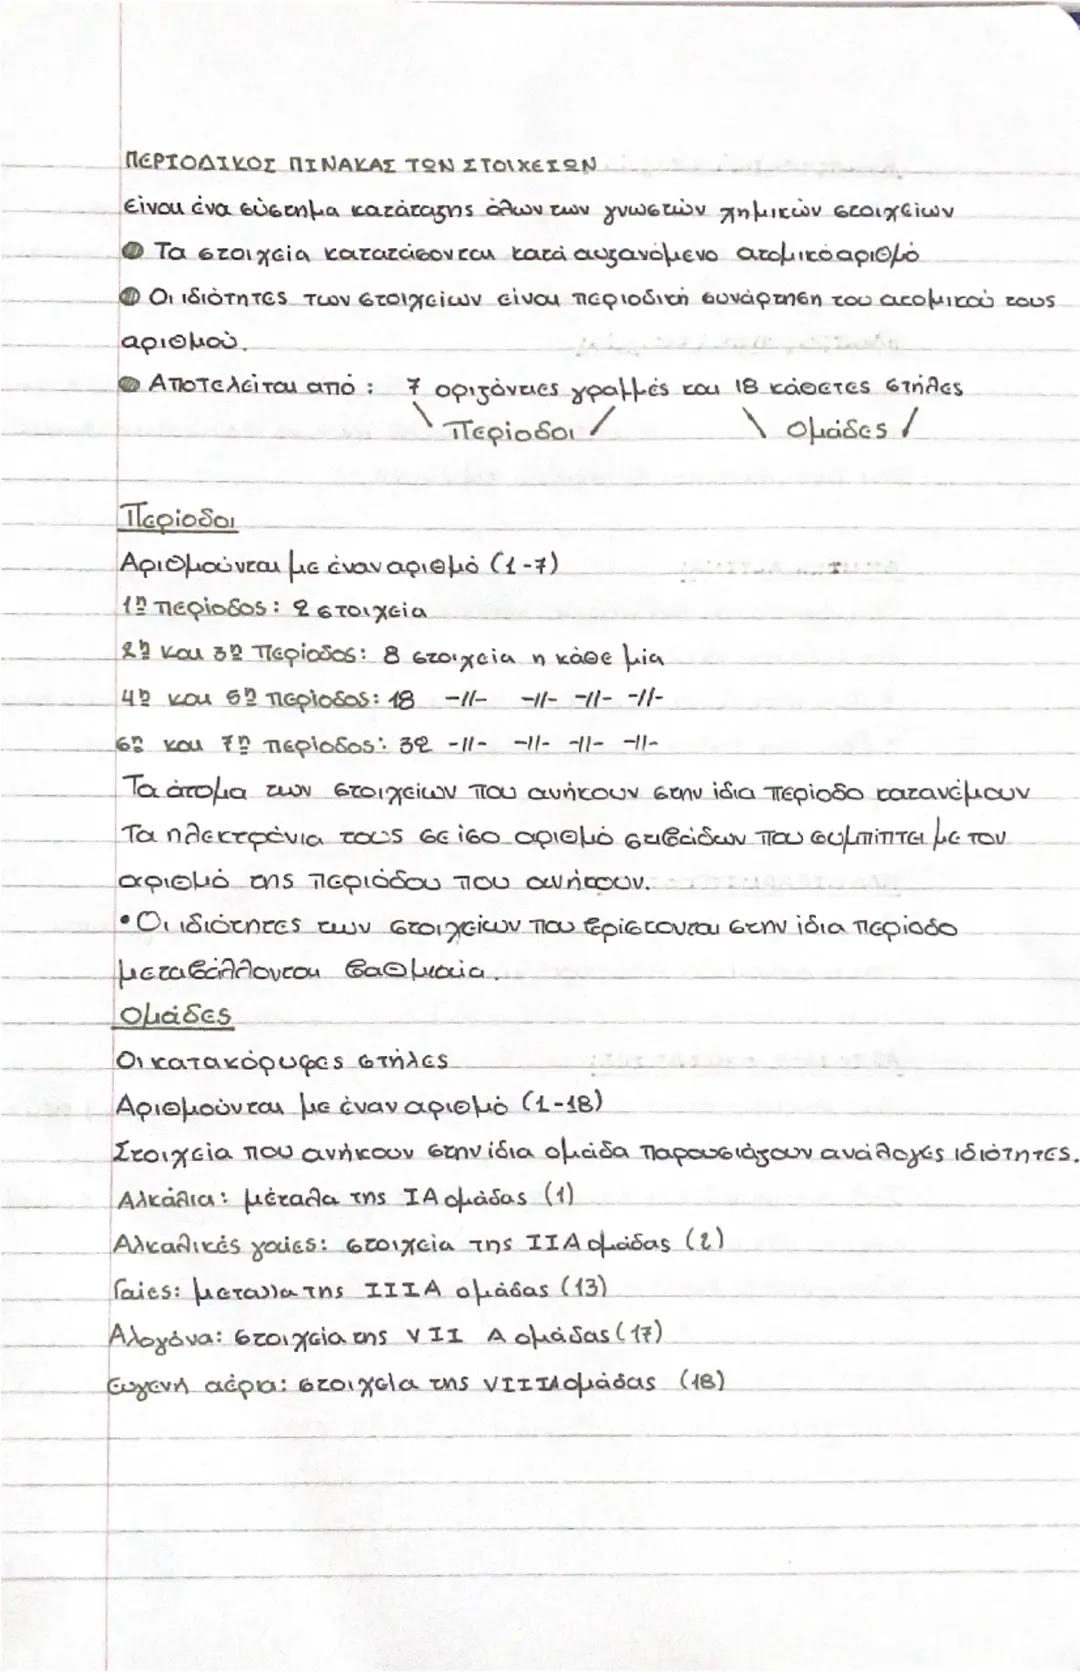 ΠΕΡΙΟΔΙΚΟΣ ΠΙΝΑΚΑΣ ΤΩΝ ΣΤΟΙΧΕΙΩΝ
Είναι ένα σύστημα κατάταξης όλων των γνωστών χημικών στοιχείων
Τα στοιχεία κατατάσονται κατά αυξανόμενο ατομικό αριθμό
Οι ιδιότητες των στοιχείων είναι περιοδική συνάρτηση του ατομικού τους
αριθμού.
Αποτελείται από: 7 οριζόντιες γραμμές και 18 κάθετες στήλες
\ Περίοδοι / \ Ομάδες /
Περίοδοι
Αριθμούνται με έναν αριθμό (1-7)
1η περίοδος: 2 στοιχεία
2η και 3η Περίοδος: 8 στοιχεία η κάθε μία
4η και 5η περίοδος: 18 -//- -//- -//- -//-
6η και 7η περίοδος: 32 -//- -//- -//- -//-
Τα άτομα των στοιχείων που ανήκουν στην ίδια περίοδο κατανέμουν
Τα ηλεκτρόνια τους σε ίσο αριθμό στιβάδων που συμπίπτει με τον
αριθμό της περιόδου που ανήκουν.
• Οι ιδιότητες των στοιχείων που βρίσκονται στην ίδια περίοδο
μεταβάλλονται βαθμιαία.
Ομάδες
Οι κατακόρυφες στήλες
Αριθμούνται με έναν αριθμό (1-18)
Στοιχεία που ανήκουν στην ίδια ομάδα παρουσιάζουν ανάλογες ιδιότητες.
Αλκάλια: μέταλα της IA ομάδας (1)
Αλκαλικές γαίες: στοιχεία της IIA ομάδας (2)
Γαίες: μεταλλα της IIIA ομάδας (13)
Αλογόνα: στοιχεία της VII A ομάδας (17)
Ευγενή αέρια: στοιχεία της VIIIA ομάδας (18)